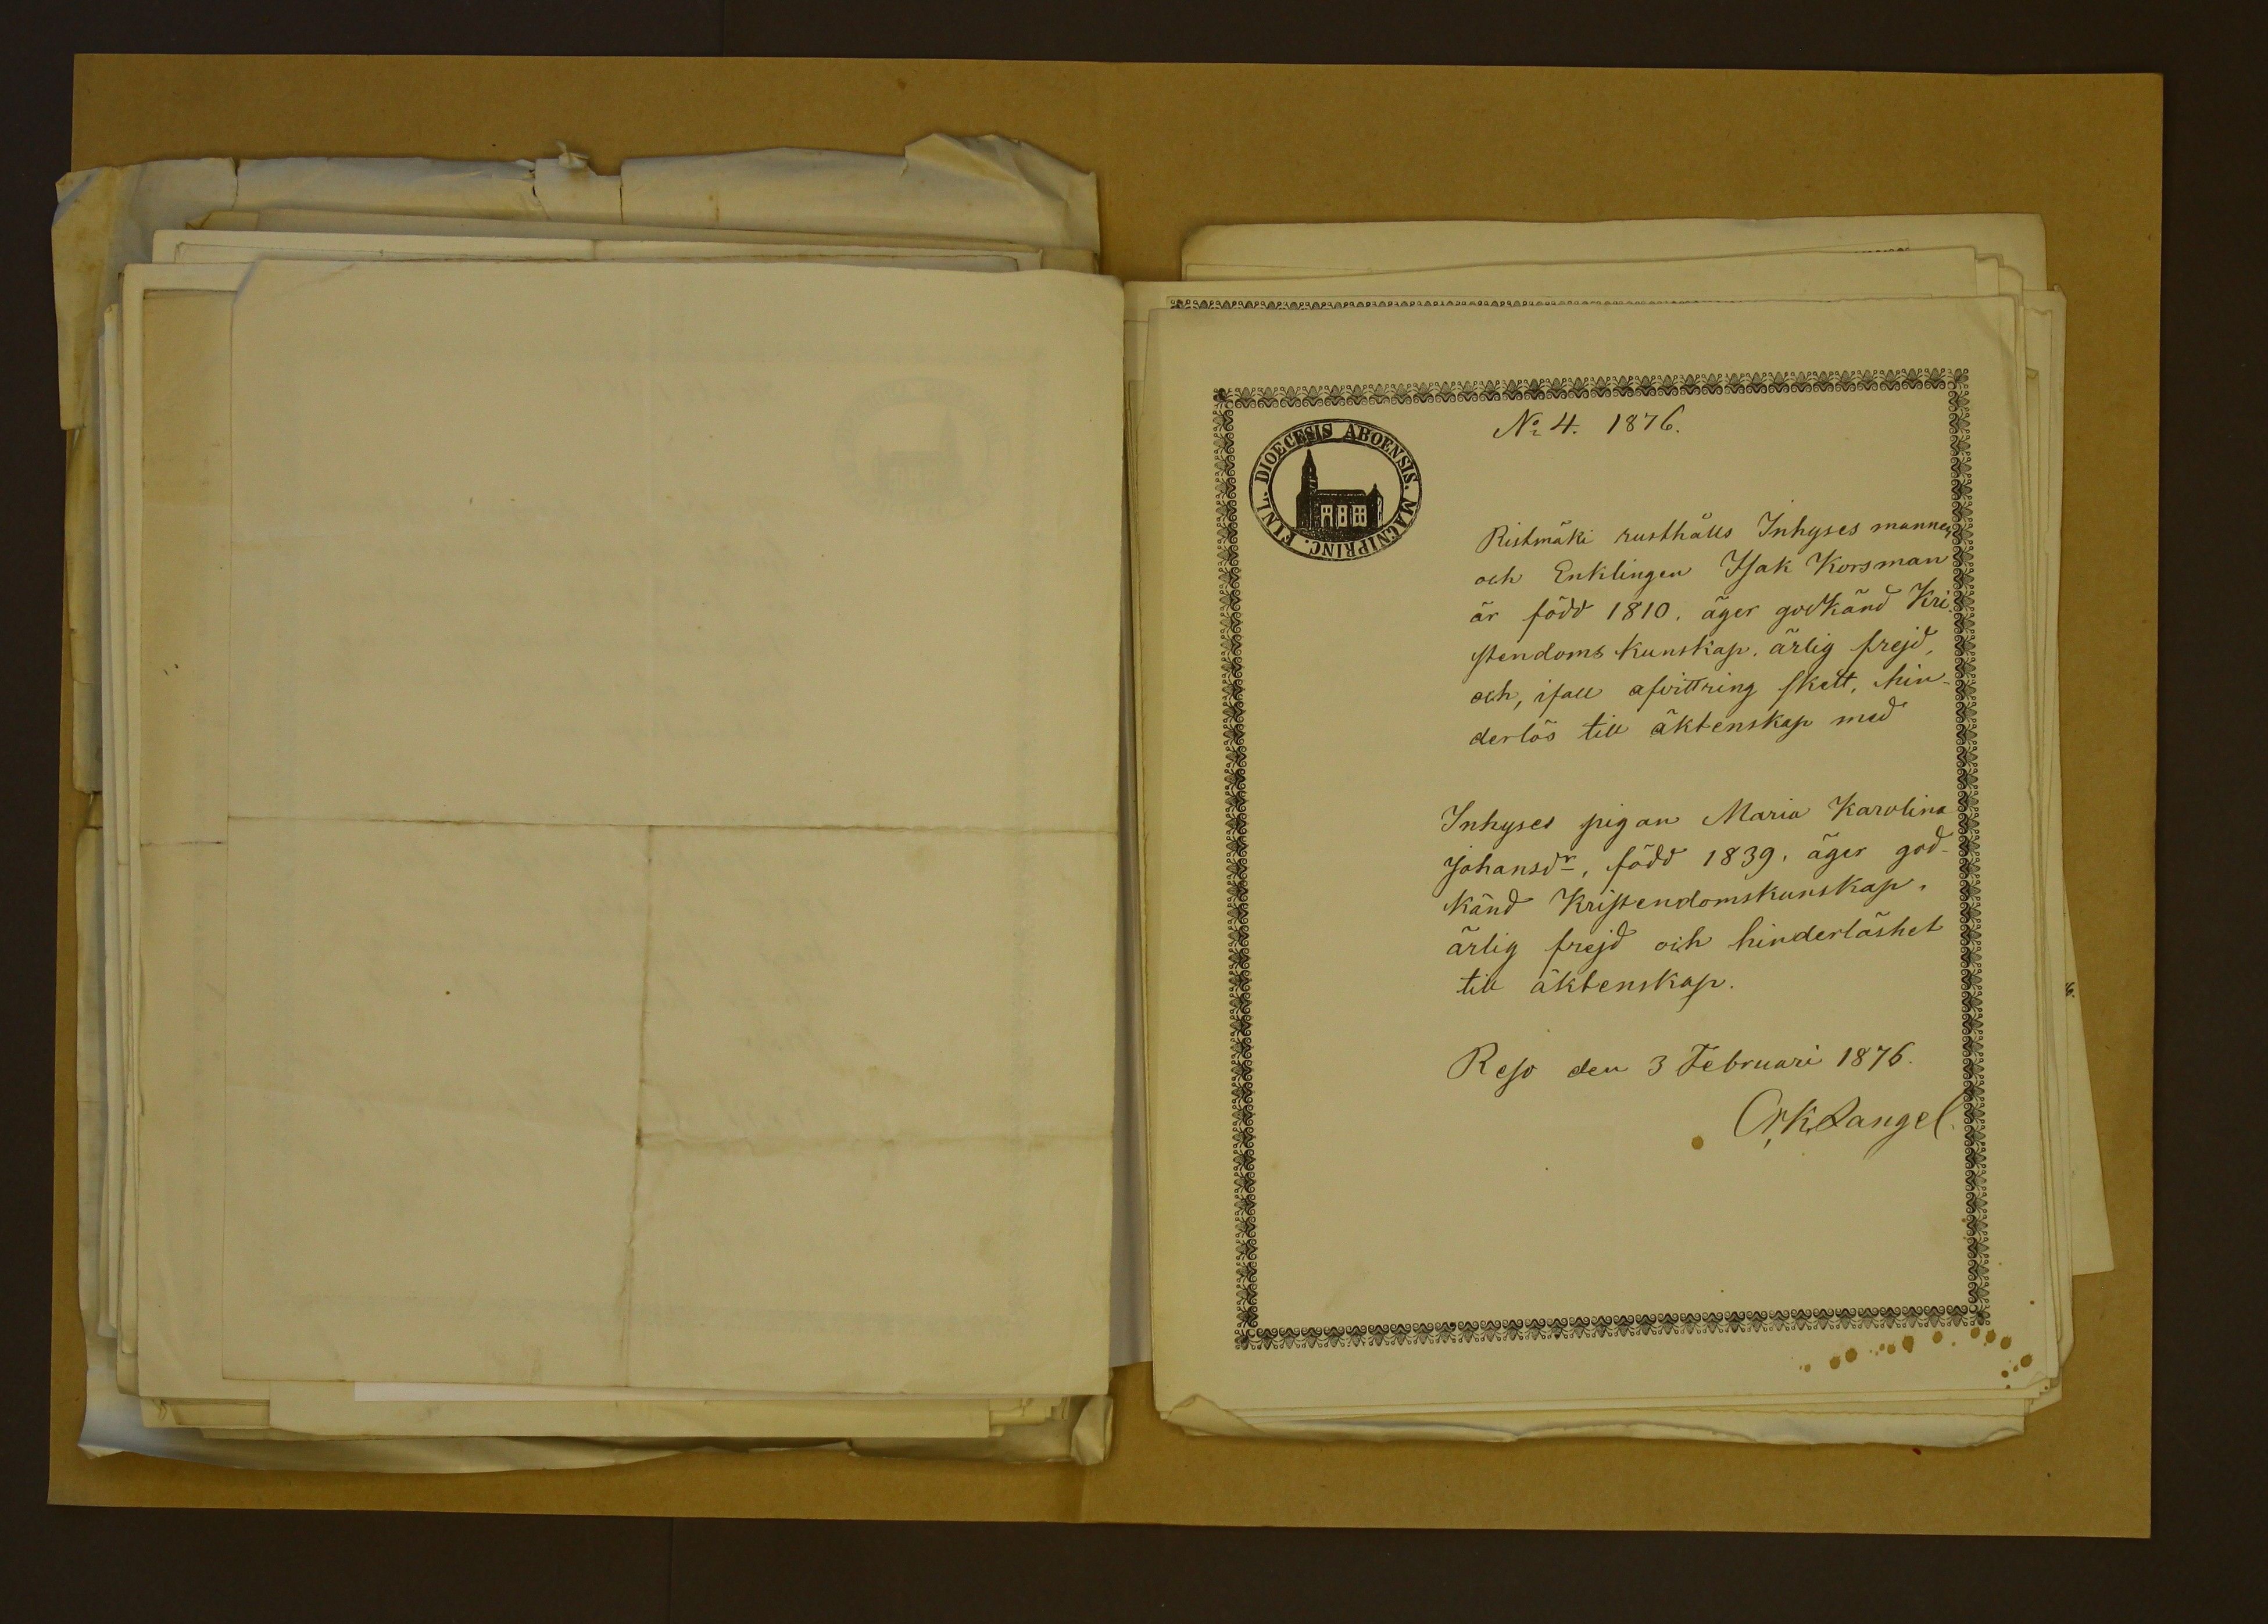 FINL. DIOECESIS ABOENSIS. MAGNIPRINC.
No 4. 1876.
Ristmäki rusthålls Inhyses mannen
och Enklingen Isak Korsman
är född 1810. äger godkänd Kri-
stendoms kunskap, ärlig frejd,
och, ifall afvittring skett, hin-
derlös till äktenskap med
Inhyses pigan Maria Karolina
Johansdr, född 1839. äger god-
känd Kristendomskunskap,
ärlig frejd och hinderlöshet
till äktenskap.
Reso den 3 Februari 1876.